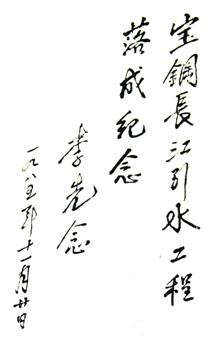 宝鋼長江引水工程
落成纪念
李先念
一九八五年十一月廿日